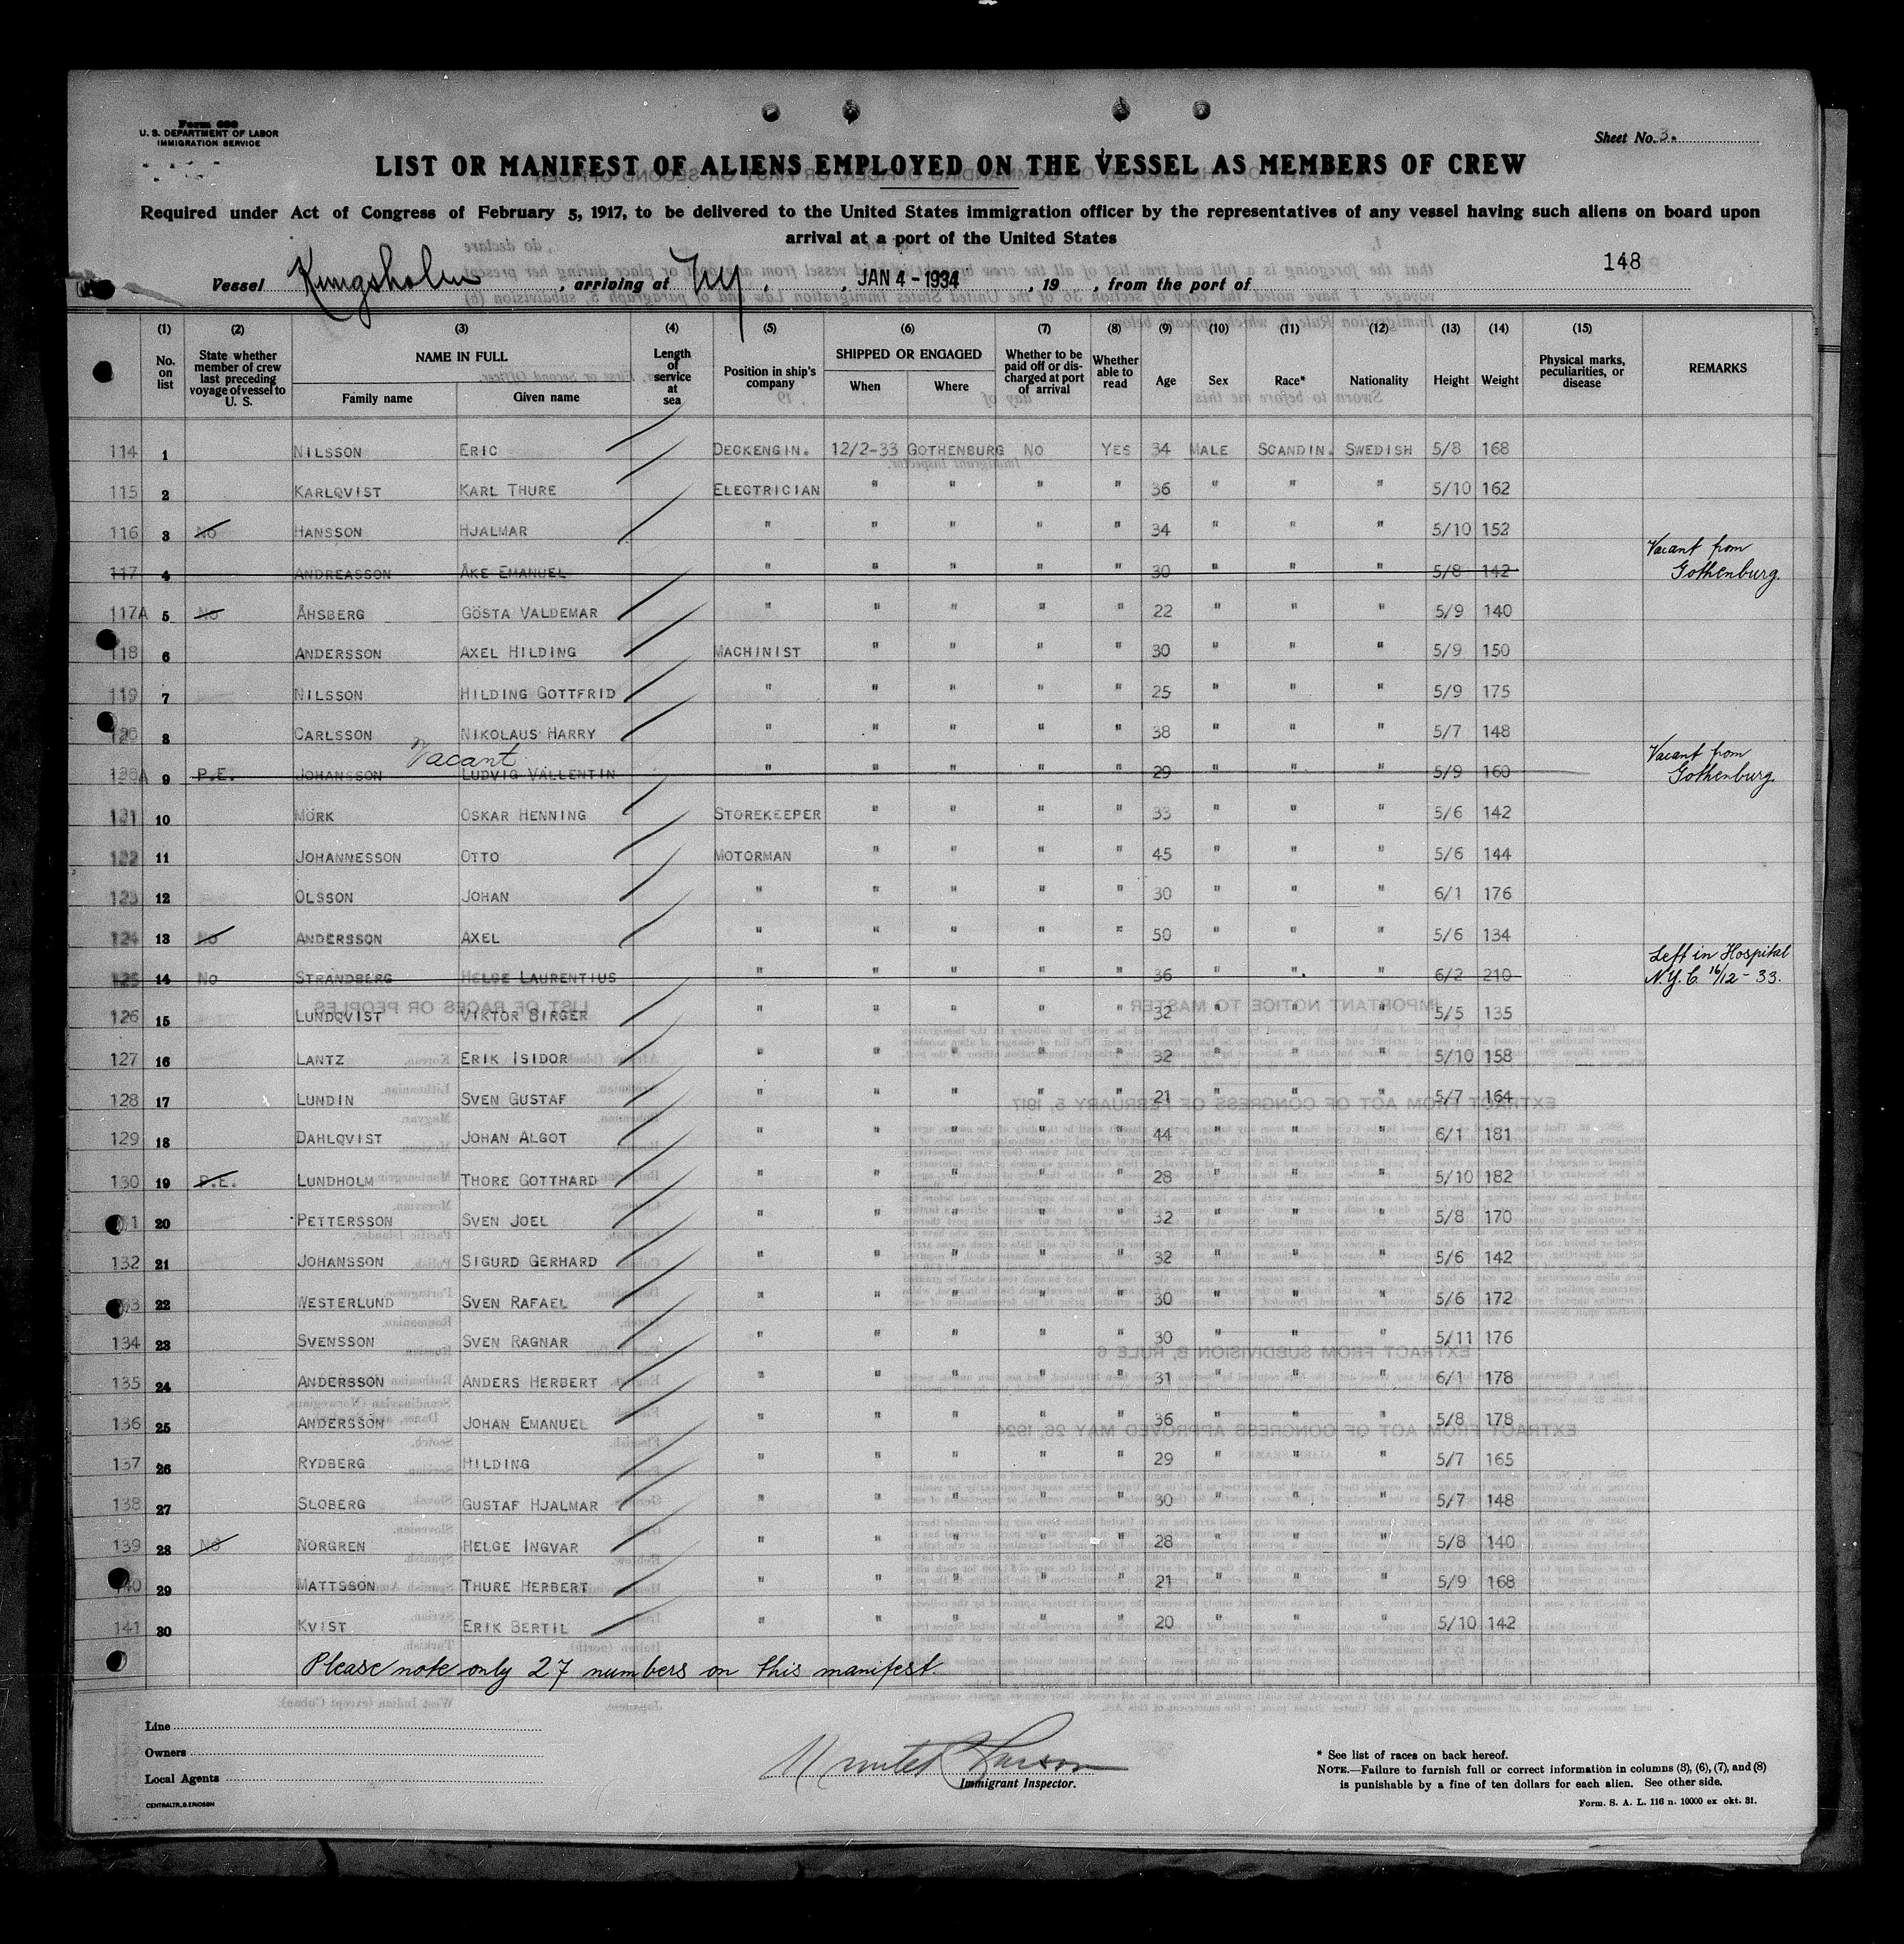 Form 680
U. S. DEPARTMENT OF LABOR
IMMIGRATION SERVICE
Sheet No. 3.
LIST OR MANIFEST OF ALIENS EMPLOYED ON THE VESSEL AS MEMBERS OF CREW
Required under Act of Congress of February 5, 1917, to be delivered to the United States immigration officer by the representatives of any vessel having such aliens on board upon
arrival at a port of the United States
148
Vessel Kungsholm, arriving at NY, JAN 4 - 1934, 19 , from the port of
(1) No. on list (2) State whether member of crew last preceding voyage of vessel to U. S. (3) NAME IN FULL Family name Given name (4) Length of service at sea (5) Position in ship's company (6) SHIPPED OR ENGAGED When Where (7) Whether to be paid off or discharged at port of arrival (8) Whether able to read (9) Age (10) Sex (11) Race* (12) Nationality (13) Height (14) Weight (15) Physical marks, peculiarities, or disease REMARKS
114 1 NILSSON ERIC DECKENGIN. 12/2-33 GOTHENBURG NO YES 34 MALE SCANDIN. SWEDISH 5/8 168
115 2 KARLQVIST KARL THURE ELECTRICIAN " " " " 36 " " " 5/10 162
116 3 No HANSSON HJALMAR " " " " " 34 " " " 5/10 152
117 4 ANDREASSON ÅKE EMANUEL " " " " " 30 " " " 5/8 142 Vacant from Gothenburg.
117A 5 No ÅHSBERG GÖSTA VALDEMAR " " " " " 22 " " " 5/9 140
118 6 ANDERSSON AXEL HILDING MACHINIST " " " " 30 " " " 5/9 150
119 7 NILSSON HILDING GOTTFRID " " " " " 25 " " " 5/9 175
120 8 CARLSSON NIKOLAUS HARRY " " " " " 38 " " " 5/7 148
Vacant
120A 9 P.E. JOHANSSON LUDVIG VALLENTIN " " " " " 29 " " " 5/9 160 Vacant from Gothenburg.
121 10 MÖRK OSKAR HENNING STOREKEEPER " " " " 33 " " " 5/6 142
122 11 JOHANNESSON OTTO MOTORMAN " " " " 45 " " " 5/6 144
123 12 OLSSON JOHAN " " " " " 30 " " " 6/1 176
124 13 No ANDERSSON AXEL " " " " " 50 " " " 5/6 134
125 14 No STRANDBERG HELGE LAURENTIUS " " " " " 36 " " " 6/2 210 Left in Hospital N.Y.C. 16/12-33.
126 15 LUNDQVIST VIKTOR BIRGER " " " " " 32 " " " 5/5 135
127 16 LANTZ ERIK ISIDOR " " " " " 32 " " " 5/10 158
128 17 LUNDIN SVEN GUSTAF " " " " " 21 " " " 5/7 164
129 18 DAHLQVIST JOHAN ALGOT " " " " " 44 " " " 6/1 181
130 19 P.E. LUNDHOLM THORE GOTTHARD " " " " " 28 " " " 5/10 182
1 20 PETTERSSON SVEN JOEL " " " " " 32 " " " 5/8 170
132 21 JOHANSSON SIGURD GERHARD " " " " " 32 " " " 5/6 142
133 22 WESTERLUND SVEN RAFAEL " " " " " 30 " " " 5/6 172
134 23 SVENSSON SVEN RAGNAR " " " " " 30 " " " 5/11 176
135 24 ANDERSSON ANDERS HERBERT " " " " " 31 " " " 6/1 178
136 25 ANDERSSON JOHAN EMANUEL " " " " " 36 " " " 5/8 178
137 26 RYDBERG HILDING " " " " " 29 " " " 5/7 165
138 27 SLOBERG GUSTAF HJALMAR " " " " " 30 " " " 5/7 148
139 28 No NORGREN HELGE INGVAR " " " " " 28 " " " 5/8 140
140 29 MATTSSON THURE HERBERT " " " " " 21 " " " 5/9 168
141 30 KVIST ERIK BERTIL " " " " " 20 " " " 5/10 142
Please note only 27 numbers on this manifest
Line
Owners
Local Agents
CENTRALTR. G. ERICSON
Immigrant Inspector.
* See list of races on back hereof.
NOTE.—Failure to furnish full or correct information in columns (3), (6), (7), and (8)
is punishable by a fine of ten dollars for each alien. See other side.
Form. S. A. L. 116 n. 10000 ex okt. 31.